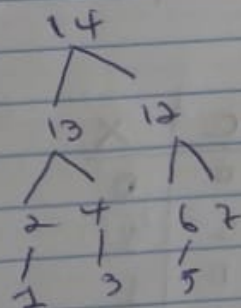 14
13 12
2 4 6 7
1 3 5